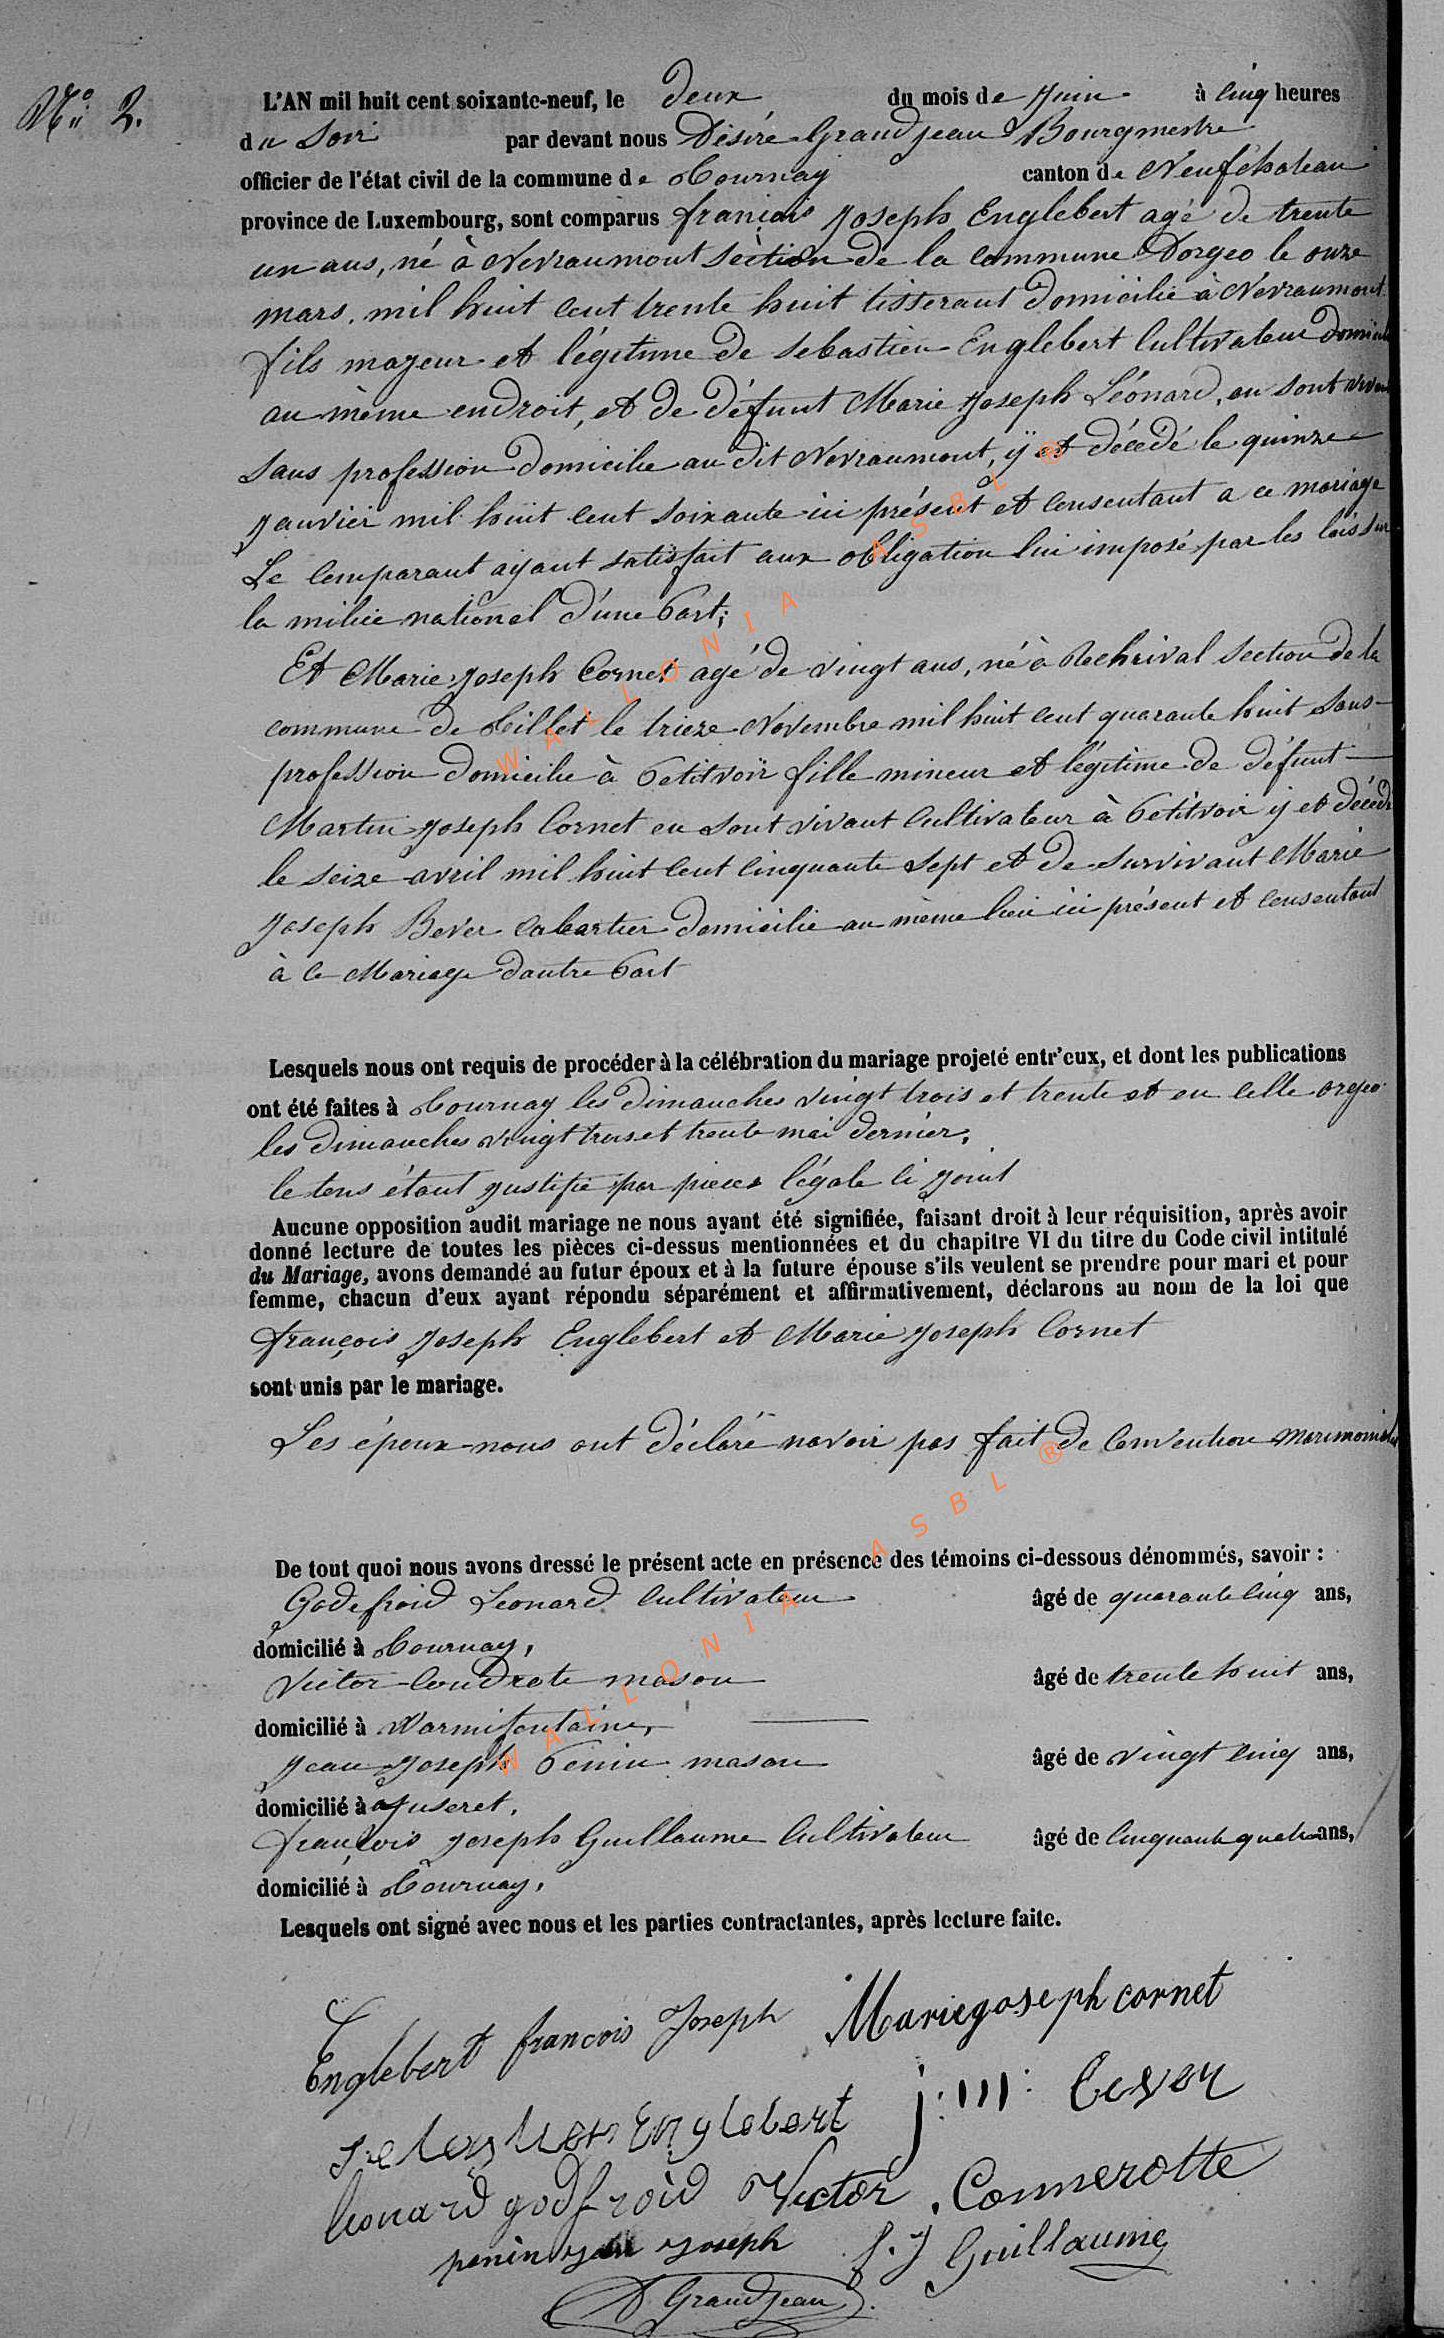 N° 2.
L'AN mil huit cent soixante-neuf, le deux du mois de Juin à cinq heures
du Soir par devant nous Désiré Grandjean Bourgmestre
officier de l'état civil de la commune de Tournay canton de Neufchateau
province de Luxembourg, sont comparus françois Joseph Englebert agé de trente
un ans, né à Nevraumont Section de la commune Dorgeo le onze
mars, mil huit cent trente huit tisserant Domicilié à Névraumont
fils majeur et légitime de Sebastien Englebert Cultivateur Domicilié
au même endroit, et de défunt Marie Joseph Léonard, en sont vivant
Sans profession Domicilie au dit Nevraumont, ÿ et décédé le quinze
Janvier mil huit cent soixante ici présent et consentant a ce mariage
Le Comparant ayant satisfait aux obligation lui imposé par les lois sur
la milice national d'une Part;
Et Marie Joseph Cornet agé de vingt ans, né à Rechrival Section de la
commune de Tillet le trieze Novembre mil huit cent quarante huit Sans
profession domicilie à Petitvoir fille mineur et légitime de défunt
Martin Joseph Cornet en sont vivant Cultivateur à Petitvoir ÿ et décédé
le seize avril mil huit cent cinquante sept et de survivant Marie
Joseph Bever Cabartier Domicilié au même lieu ici présent et consentant
à ce Mariage Dautre Part
Lesquels nous ont requis de procéder à la célébration du mariage projeté entr'eux, et dont les publications
ont été faites à Tournay les Dimanches vingt trois et trente et en celle orgeo
les Dimanches vingt trois et trente mai dernier,
le tous étant justifié par pieces légale ci joint
Aucune opposition audit mariage ne nous ayant été signifiée, faisant droit à leur réquisition, après avoir
donné lecture de toutes les pièces ci-dessus mentionnées et du chapitre VI du titre du Code civil intitulé
du Mariage, avons demandé au futur époux et à la future épouse s'ils veulent se prendre pour mari et pour
femme, chacun d'eux ayant répondu séparément et affirmativement, déclarons au nom de la loi que
françois Joseph Englebert et Marie Joseph Cornet
sont unis par le mariage.
Les époux nous ont déclaré navoir pas fait de Convention
De tout quoi nous avons dressé le présent acte en présence des témoins ci-dessous dénommés, savoir :
Godefroid Leonard Cultivateur âgé de quarante cinq ans,
domicilié à Tournay,
Victor mason âgé de trente huit ans,
domicilié à Warmifontaine,
Jean Joseph Penin mason âgé de vingt cinq ans,
domicilié à Juseret,
françois Joseph Guillaume Cultivateur âgé de cinquante quatre ans,
domicilié à Tournay,
Lesquels ont signé avec nous et les parties contractantes, après lecture faite.
Englebert francois Joseph Mariejoseph cornet
Englebert j: m: bever
leonard godfroid Victor Connerotte
penin jean joseph f. J Guillaume
D Grandjean
WALLONIA ASBL ®
WALLONIA ASBL ®